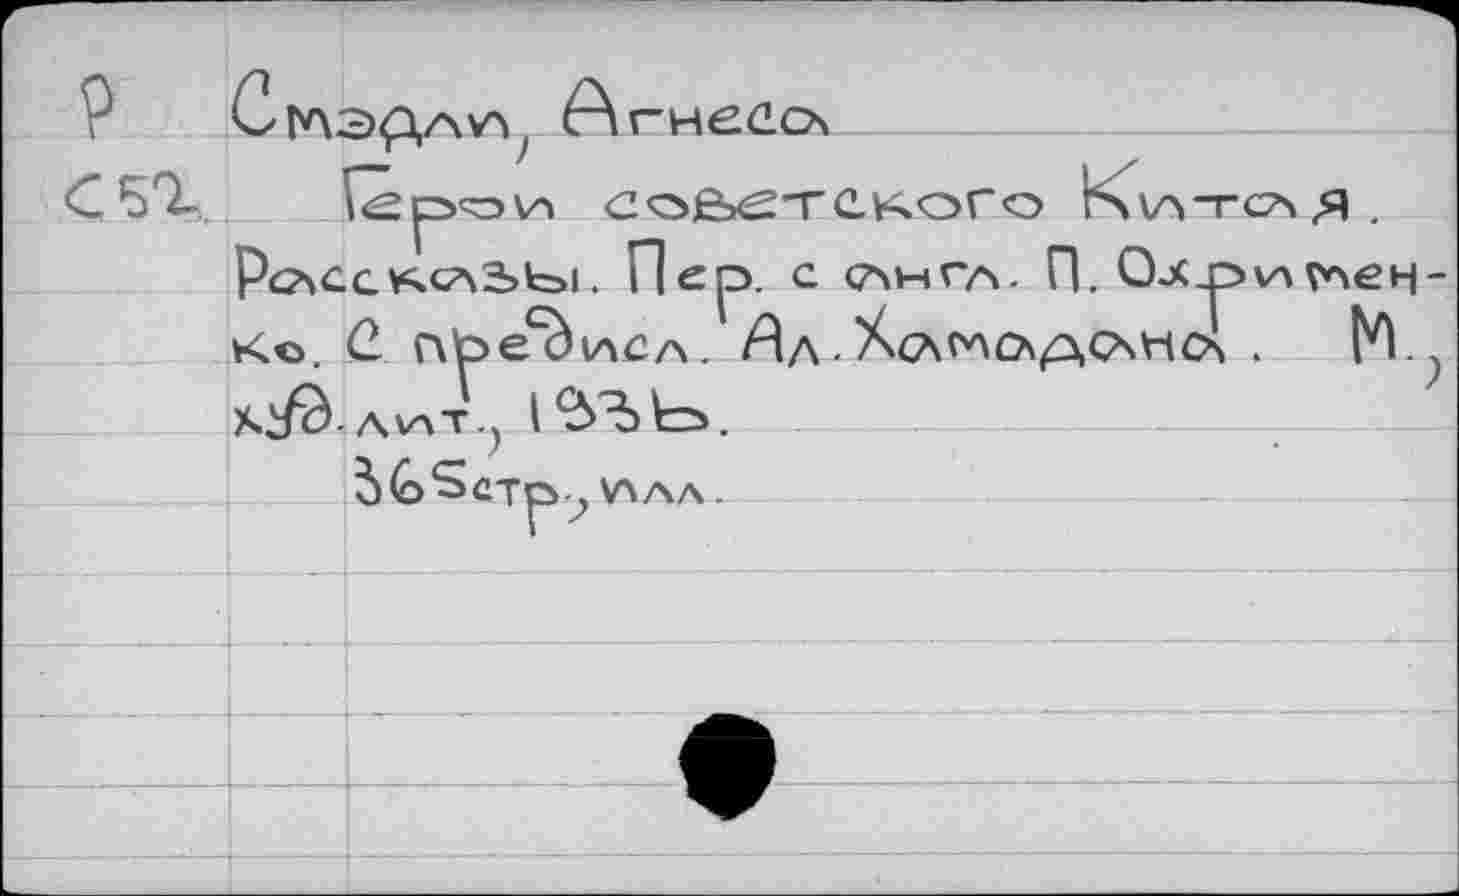 Р Смэдли, Агнесса
С 52. Герои советского Китая.
Рассказы. Пер. с англ. П. Охримен-
ко. С предисл. Ал. Хамадана. М.,
худ. лит., 1936.
365 стр., илл.